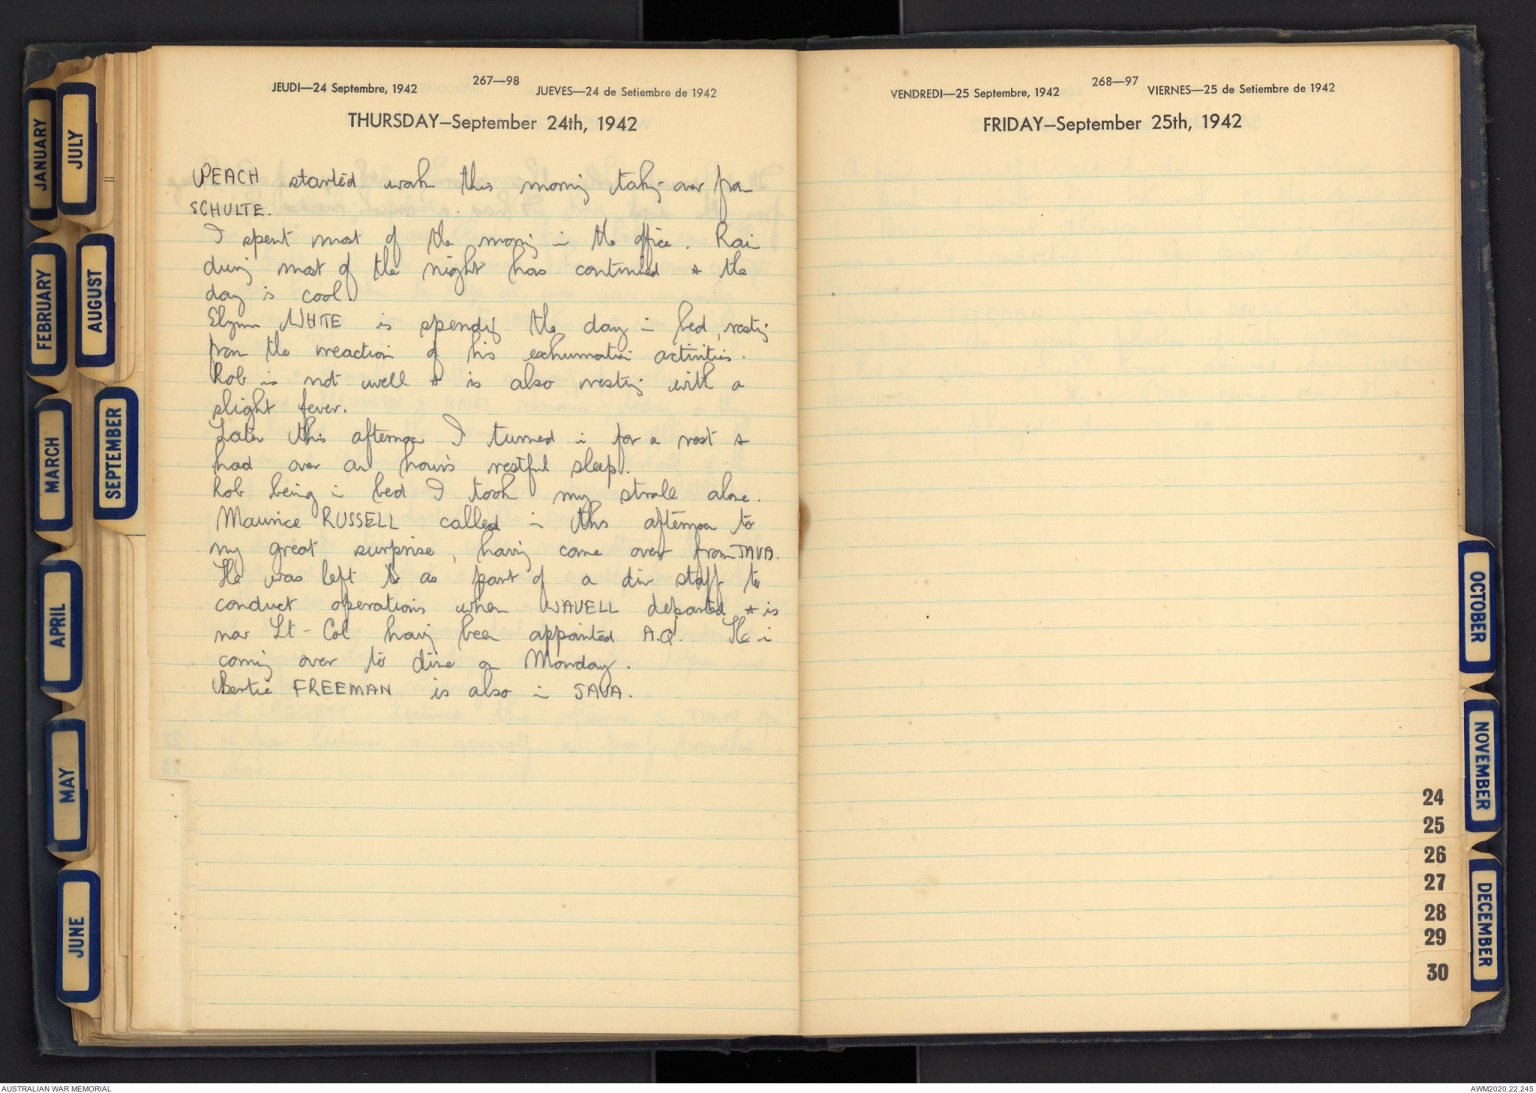 JEUDI—24 Septembre, 1942
267—98
JUEVES—24 de Setiembre de 1942
THURSDAY—September 24th, 1942
PEACH started work this morning taking over from
SCHULTE.
I spent most of the morning in the office. Rain
during most of the night has continued & the
day is cool.
WHITE is spending the day in bed, resting
from the reaction of his exhumation activities.
Rob is not well & is also resting with a
slight fever.
Later this afternoon I turned in for a rest &
had over an hour's restful sleep.
Rob being in bed I took my stroll alone.
Maurice RUSSELL called in this afternoon to
my great surprise, having come over from JAVA.
He was left as part of a div staff to
conduct operations when WAVELL departed & is
now Lt-Col having been appointed A.Q. He is
coming over to dine on Monday.
Bertie FREEMAN is also in JAVA.
VENDREDI—25 Septembre, 1942
268—97
VIERNES—25 de Setiembre de 1942
FRIDAY—September 25th, 1942
JANUARY
JULY
FEBRUARY
AUGUST
MARCH
SEPTEMBER
APRIL
MAY
JUNE
OCTOBER
NOVEMBER
DECEMBER
24
25
26
27
28
29
30
AUSTRALIAN WAR MEMORIAL
AWM2020.22.245